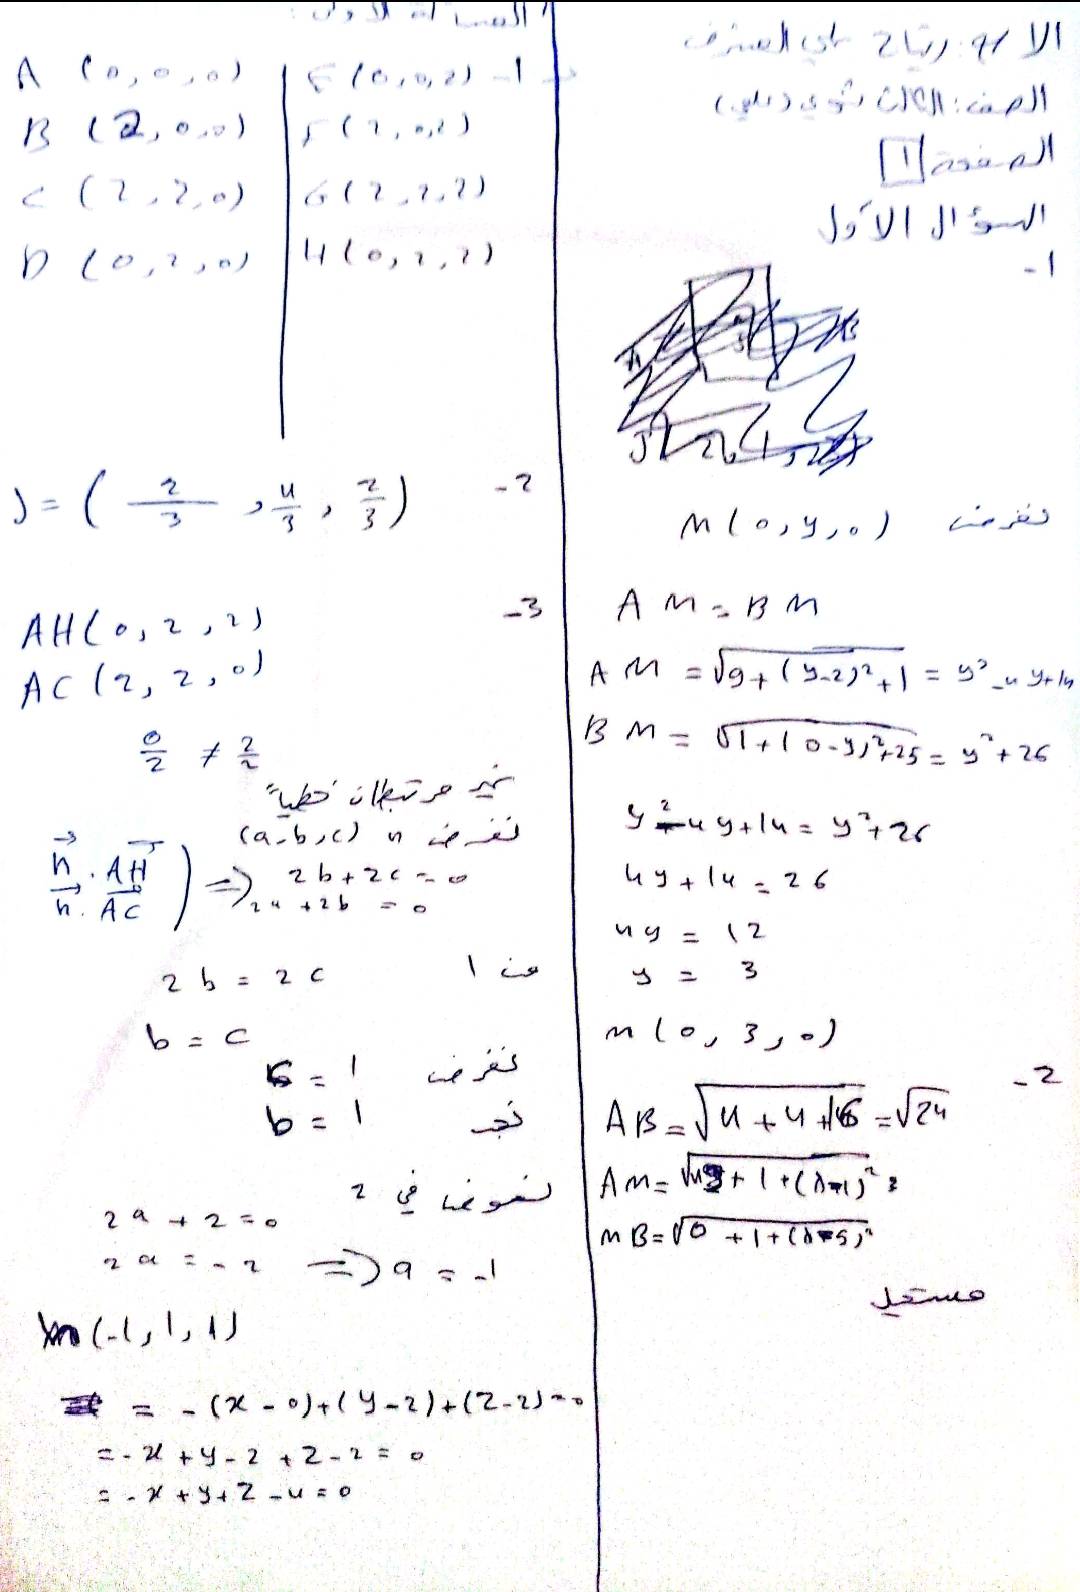 الصف: الثالث ثانوي (علمي)
الصفحة 1
السؤال الأول
1-
نفرض M(0, y, 0)
AM = BM
AM = √9+(y-2)²+1 = y²-4y+14
BM = √1+(0-y)²+25 = y²+26
y²-4y+14 = y²+26
4y+14 = 26
4y = 12
y = 3
m(0, 3, 0)
2-
AB = √4+4+16 = √24
مستحيل
المسألة الأولى:
1-
A (0,0,0)
B (2,0,0)
C (2,2,0)
D (0,2,0)
E (0,0,2)
F (2,0,2)
G (2,2,2)
H (0,2,2)
2-
J = (2/3, 4/3, 2/3)
3-
AH(0,2,2)
AC(2,2,0)
0/2 ≠ 2/2
غير مرتبطان خطياً
نفرض n (a,b,c)
n . AH
n . AC ) ⇒ 2b+2c=0
2a+2b=0
من 1 2b = 2c
b = c
نفرض = 1
نجد b = 1
نعوض في 2
2a+2=0
2a = -2 ⇒ a = -1
n(-1,1,1)
= -(x-0)+(y-2)+(z-2)=0
= -x+y-2+z-2=0
= -x+y+z-4=0